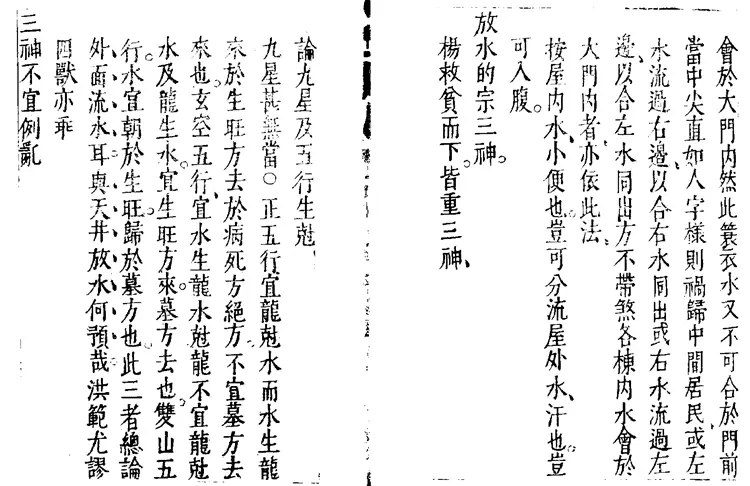 會於大門內然此簑衣水又不可合於門前
當中尖直如人字樣則禍歸中間居民或左
水流過右邊以合右水同出或右水流過左
邊以合左水同出方不帶煞各棟內水會於
大門內者亦依此法
按屋內水小便也豈可分流屋外水汗也豈
可入腹
放水的宗三神
楊救貧而下皆重三神
論九星及五行生尅
九星甚無當○正五行宜龍尅水而水生龍
來於生旺方去於病死方絕方不宜墓方去
來也玄空五行宜水生龍水尅龍不宜龍尅
水及龍生水宜生旺方來墓方去也雙山五
行水宜朝於生旺歸於墓方也此三者總論
外面流水耳與天井放水何預哉洪範尤謬
四獸亦乖
三神不宜例亂